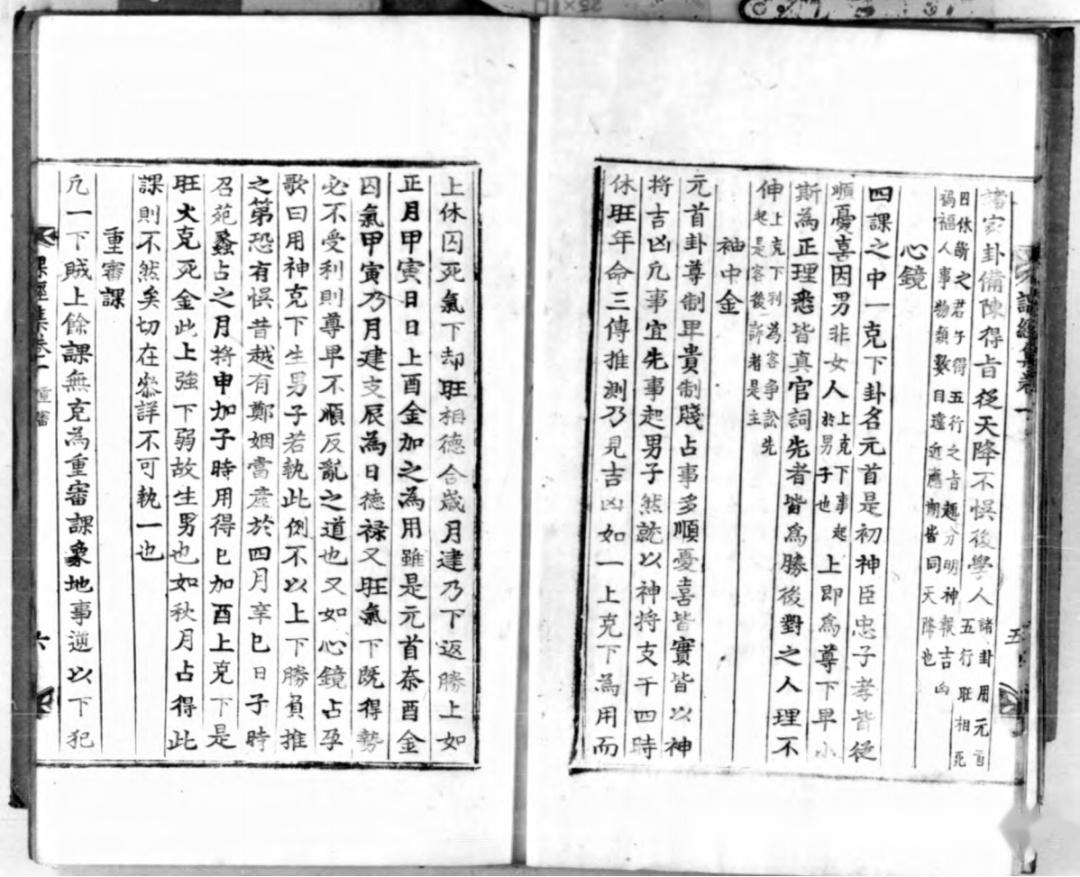 諸家卦備陳得旨從天降不悞後學人諸卦用元首五行旺相死
囚休斷之君子得五行之旨趣分明神報吉凶
禍福人事物類數目遠近應期皆同天降也
心鏡
四課之中一克下卦名元首是初神臣忠子孝皆從
順憂喜因男非女人上克下事起於男子也上即為尊下卑小
斯為正理悉皆真官詞先者皆為勝後對之人理不
伸上克下利為客爭訟先起是客後訴者是主
袖中金
元首卦尊制卑貴制賤占事多順憂喜皆實皆以神
將吉凶凡事宜先事起男子然就以神將支干四時
休旺年命三傳推測乃見吉凶如一上克下為用而
課經集卷一
五
上休囚死氣下却旺相德合歲月建乃下返勝上如
正月甲寅日日上酉金加之為用雖是元首奈酉金
囚氣甲寅乃月建支辰為日德祿又旺氣下既得勢
必不受利則尊卑不順反亂之道也又如心鏡占孕
歌曰用神克下生男子若執此例不以上下勝負推
之第恐有悞昔越有鄭姻當產於四月辛巳日子時
召苑蠡占之月將申加子時用得巳加酉上克下是
旺火克死金此上強下弱故生男也如秋月占得此
課則不然矣切在叅詳不可執一也
重審課
凡一下賊上餘課無克為重審課象地事逆以下犯
課經集卷一 重審
六